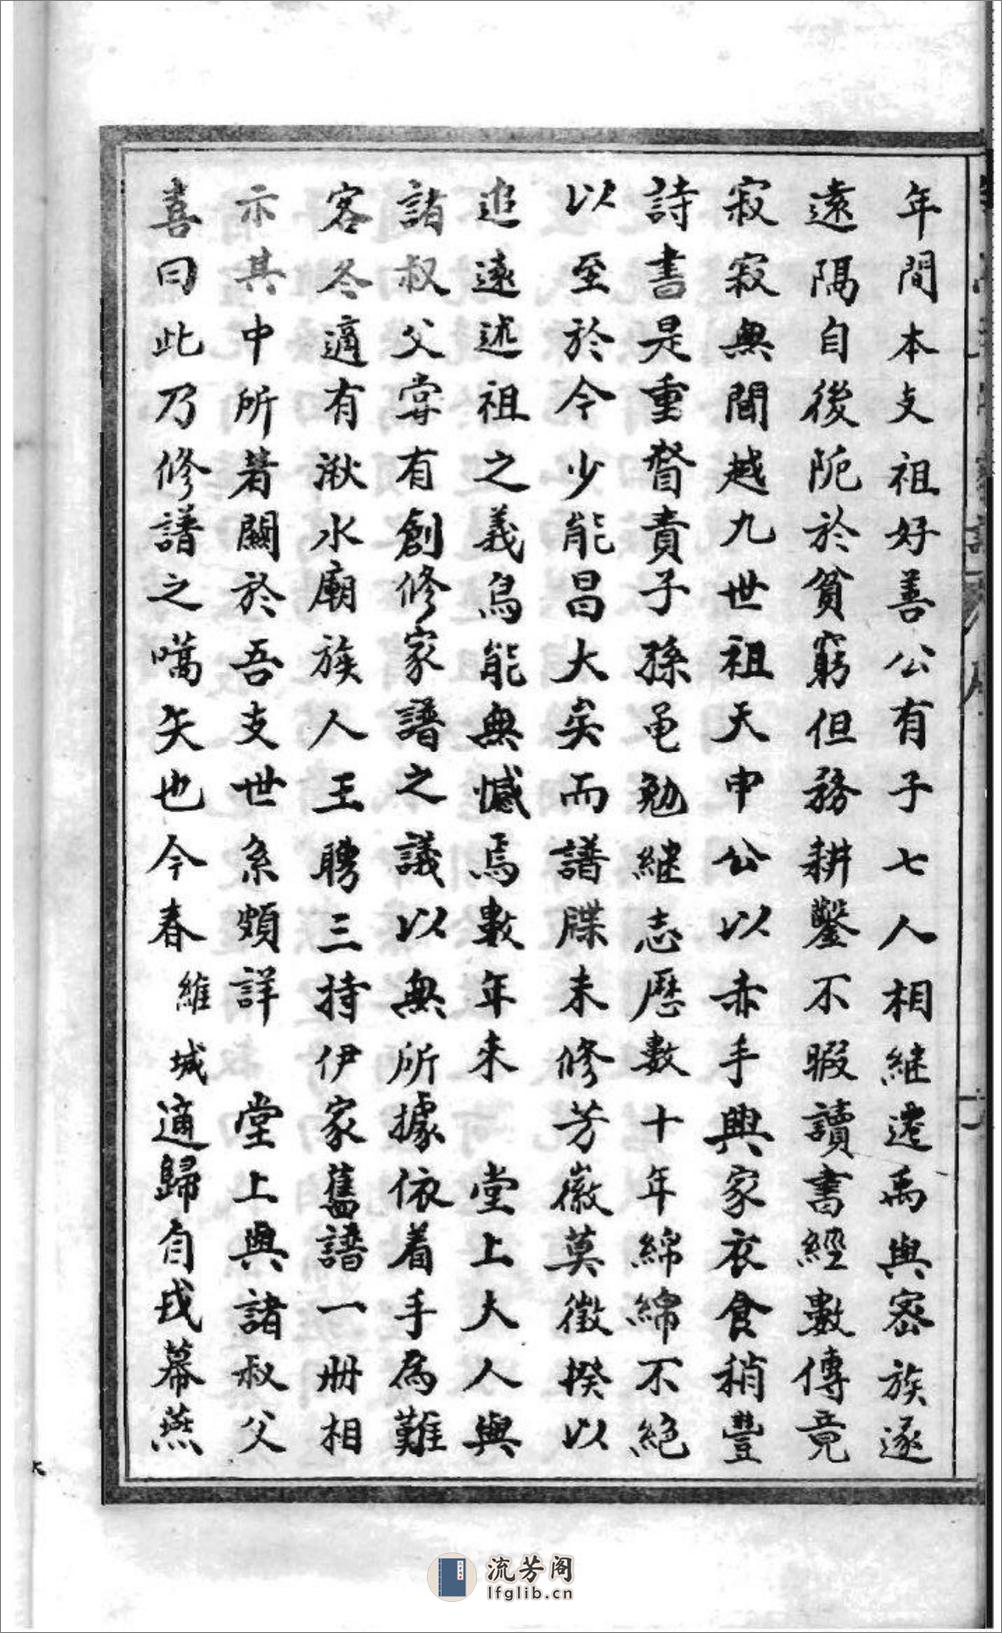 年間本支祖好善公有子七人相継遷禹與密族遂
遠隔自後阨於貧窮但務耕鑿不暇讀書經數傳竟
寂寂無聞越九世祖天申公以赤手興家衣食稍豐
詩書是重督責子孫黾勉継志歷數十年綿綿不絕
以至於今少能昌大矣而譜牒未修芳徽莫徵揆以
追遠述祖之義烏能無憾焉數年来 堂上大人與
諸叔父甞有創修家譜之議以無所據依着手為難
客冬適有溵水廟族人王聘三持伊家舊譜一册相
示其中所著關於吾支世系頗詳 堂上與諸叔父
喜曰此乃修譜之嚆矢也今春維城適歸自戎幕燕
流芳阁
lfglib.cn